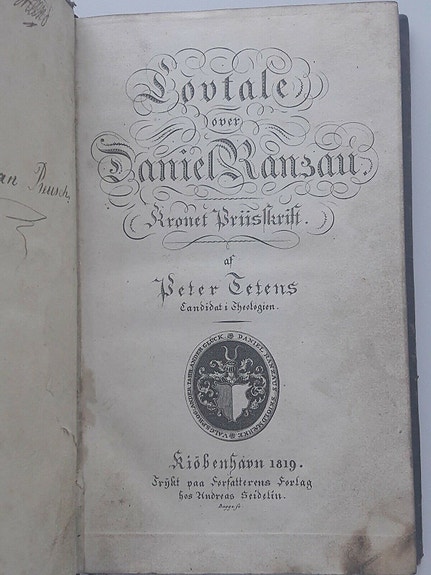 Lovtale
over
Daniel Ranzau.
Kronet Priisskrift.
af
Peter Tetens
Candidat i Theologien.
DANIEL RANTZAU'S SKIOLDMÆRKE
Kiöbenhavn 1819.
Trykt paa Forfatterens Forlag
hos Andreas Seidelin.